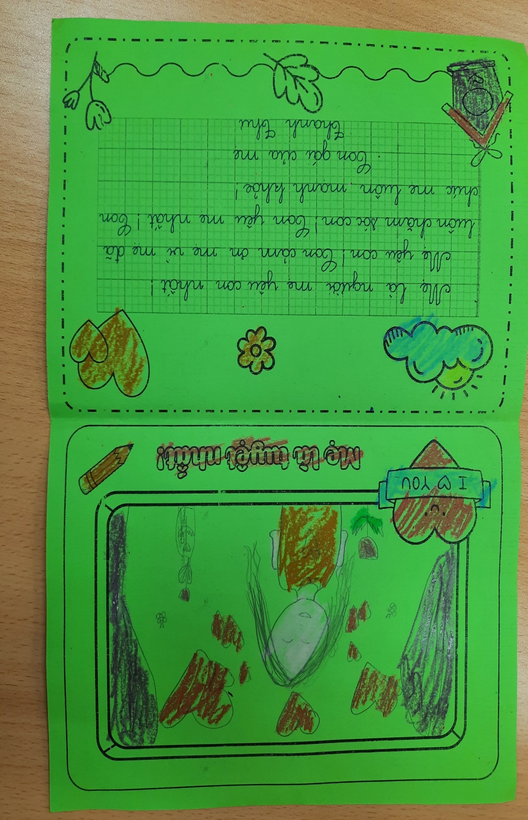 I ♡ YOU
Mẹ là tuyệt nhất!
Mẹ là người mẹ yêu con nhất!
Mẹ yêu con! Con cảm ơn mẹ vì mẹ đã
luôn chăm sóc con! Con yêu mẹ nhất! Con
chúc mẹ luôn mạnh khỏe!
Con gái của mẹ
Thanh Thư